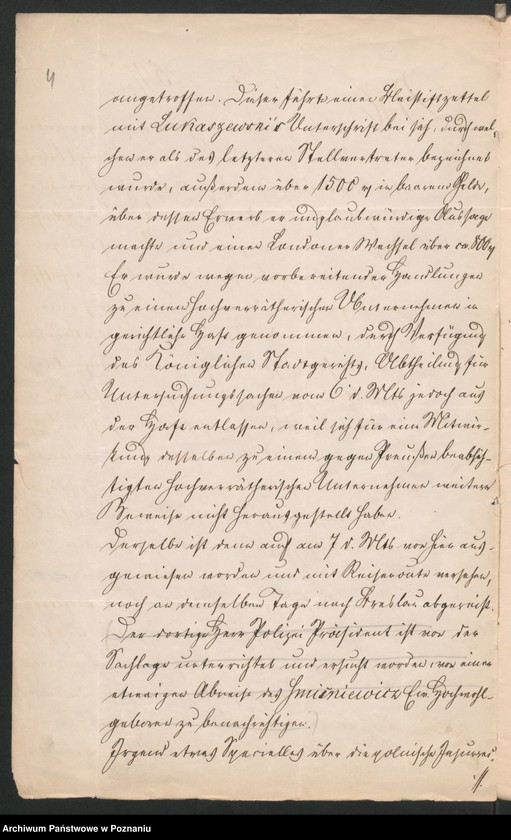 4
angetroffen. Dieser führte einen Bleistiftzettel
mit Lukaszewski's Unterschrift bei sich, durch wel-
chen er als des letzteren Stellvertreter bezeichnet
wurde, außerdem über 1500 in baarem Gelde,
über dessen Erwerb er unglaubwürdige Aussage
machte und einen Londoner Wechsel über ca. 800
Er wurde wegen vorbereitender Handlungen
zu einem hochverrätherischen Unternehmen in
gerichtliche Haft genommen, durch Verfügung
des Königlichen Stadtgerichts, Abtheilung für
Untersuchungssachen vom 6 d. Mts jedoch aus
der Haft entlassen, weil sich für eine Mitwir-
kung desselben zu einem gegen Preußen beabsich-
tigten hochverrätherischen Unternehmen weitere
Beweise nicht herausgestellt haben.
Derselbe ist denn auch am 7 d. Mts von hier aus-
gewiesen worden und mit Reiseroute versehen,
noch an demselben Tage nach Breslau abgereist.
Der dortige Herr Polizei Präsident ist von der
Sachlage unterrichtet und ersucht worden, von einer
etwaigen Abreise des Smisniewicz Ew. Hochwohl-
geboren zu benachrichtigen.
Irgend etwas Specielles über die polnische Insurrec-
Archiwum Państwowe w Poznaniu